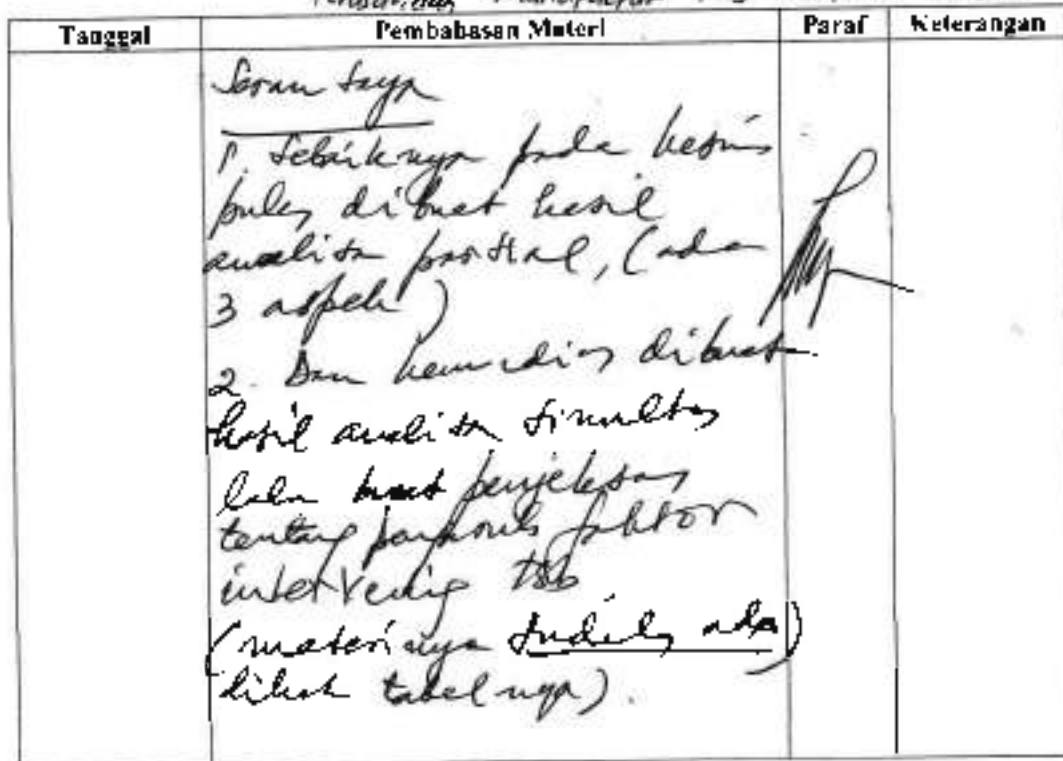 Tanggal Pembahasan Materi Paraf Keterangan
Saran saya
1. Sebaiknya pada kesim
pulan dibuat hasil
analisa parsial, (ada
3 aspek)
2. Dan kemudian dibuat
hasil analisa simultan
lalu buat penjelasan
tentang pengaruh faktor
intervening tsb
(materinya sudah ada)
lihat tabelnya).